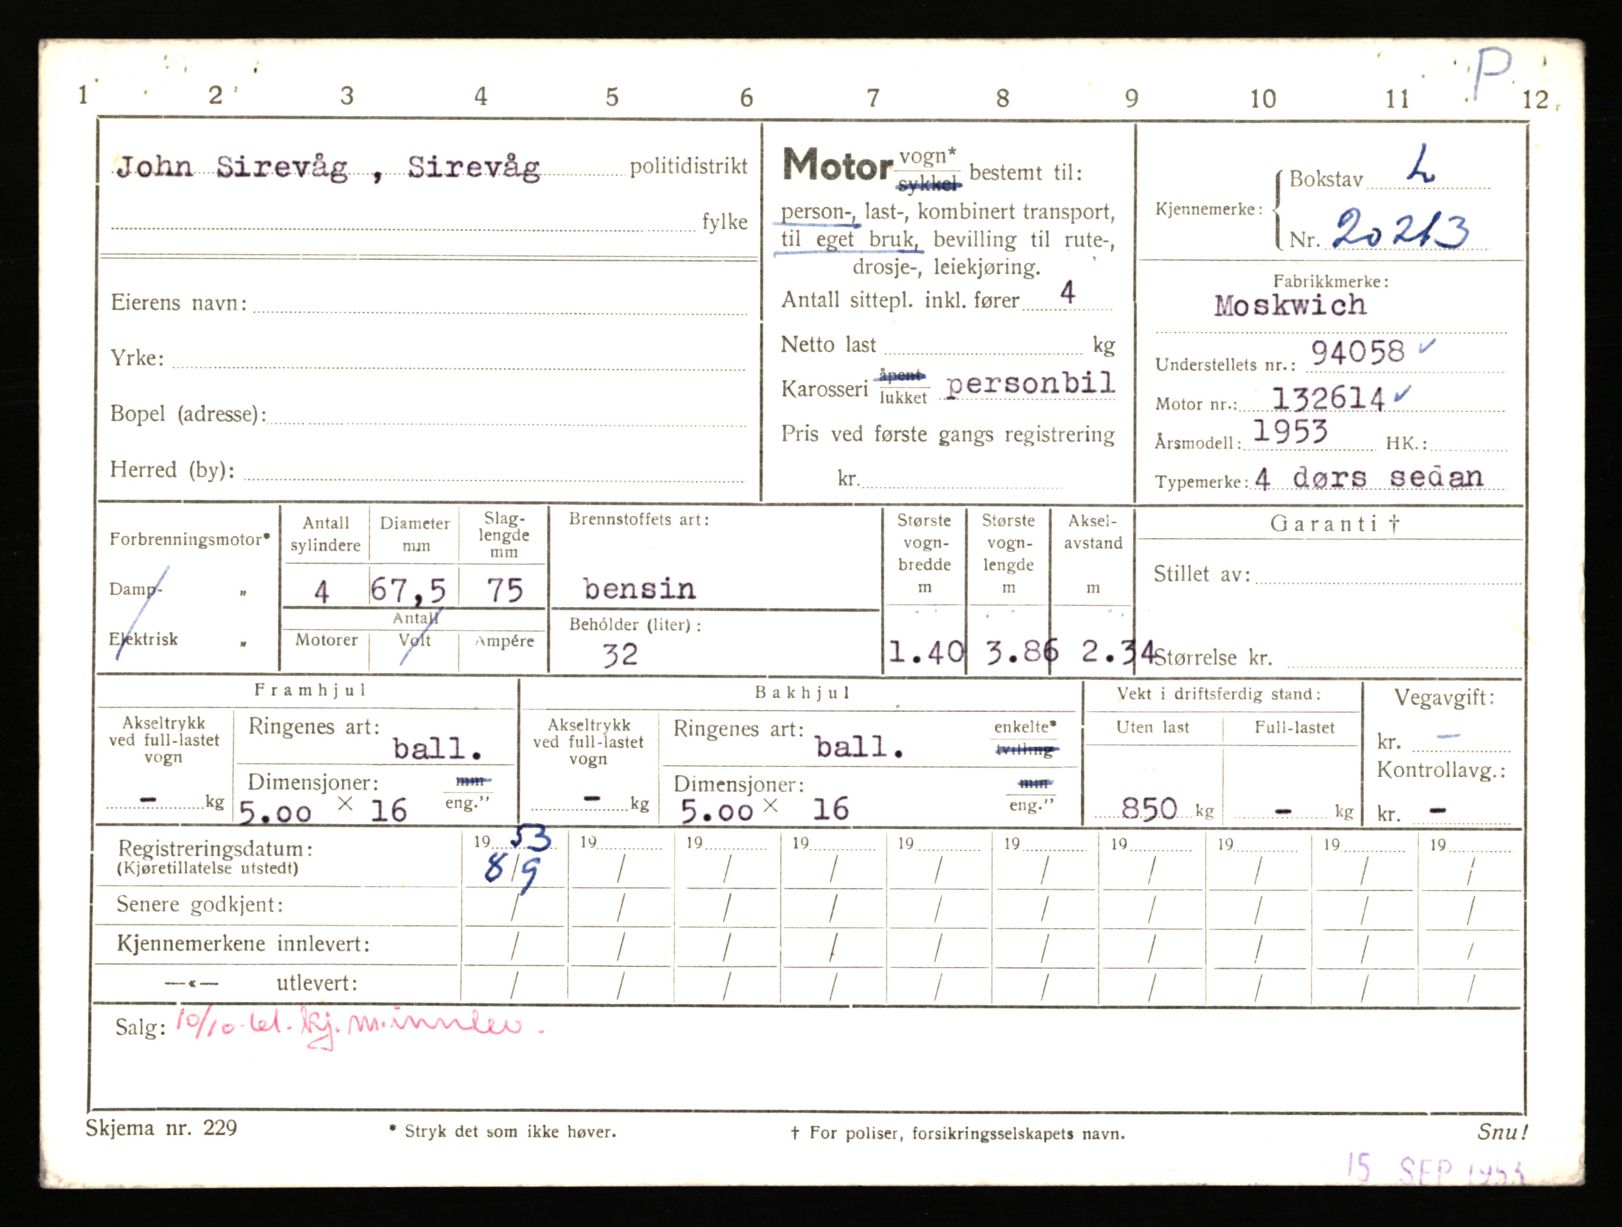 P
1 2 3 4 5 6 7 8 9 10 11 12
John Sirevåg , Sirevåg politidistrikt
fylke
Eierens navn:
Yrke:
Bopel (adresse):
Herred (by):
Motor vogn*
sykkel bestemt til:
person-, last-, kombinert transport,
til eget bruk, bevilling til rute-,
drosje-, leiekjøring.
Antall sittepl. inkl. fører 4
Netto last kg
Karosseri åpent
lukket personbil
Pris ved første gangs registrering
kr.
Kjennemerke: Bokstav L
Nr. 20213
Fabrikkmerke:
Moskwich
Understellets nr.: 94058 ✓
Motor nr.: 132614 ✓
Årsmodell: 1953 HK.:
Typemerke: 4 dørs sedan
Forbrenningsmotor*
Damp- „
Elektrisk „
Antall sylindere
4
Diameter mm
67,5
Slag-lengde mm
75
Antall
Motorer Volt Ampére
Brennstoffets art:
bensin
Beholder (liter):
32
Største vogn-bredde m
1.40
Største vogn-lengde m
3.86
Aksel-avstand m
2.34
Garanti †
Stillet av:
Størrelse kr.
Framhjul
Akseltrykk ved full-lastet vogn
- kg
Ringenes art:
ball.
Dimensjoner: mm
5.00 × 16 eng.”
Bakhjul
Akseltrykk ved full-lastet vogn
- kg
Ringenes art: enkelte*
ball. tvilling
Dimensjoner: mm
5.00 × 16 eng.”
Vekt i driftsferdig stand:
Uten last Full-lastet
850 kg - kg
Vegavgift:
kr. —
Kontrollavg.:
kr. -
Registreringsdatum: 19 53 19 19 19 19 19 19 19 19 19
(Kjøretillatelse utstedt) 8/9 / / / / / / / / /
Senere godkjent: / / / / / / / / / /
Kjennemerkene innlevert: / / / / / / / / / /
—«— utlevert: / / / / / / / / / /
Salg: 10/10 kj. m. innlev.
Skjema nr. 229 * Stryk det som ikke høver. † For poliser, forsikringsselskapets navn. Snu!
15 SEP 1953